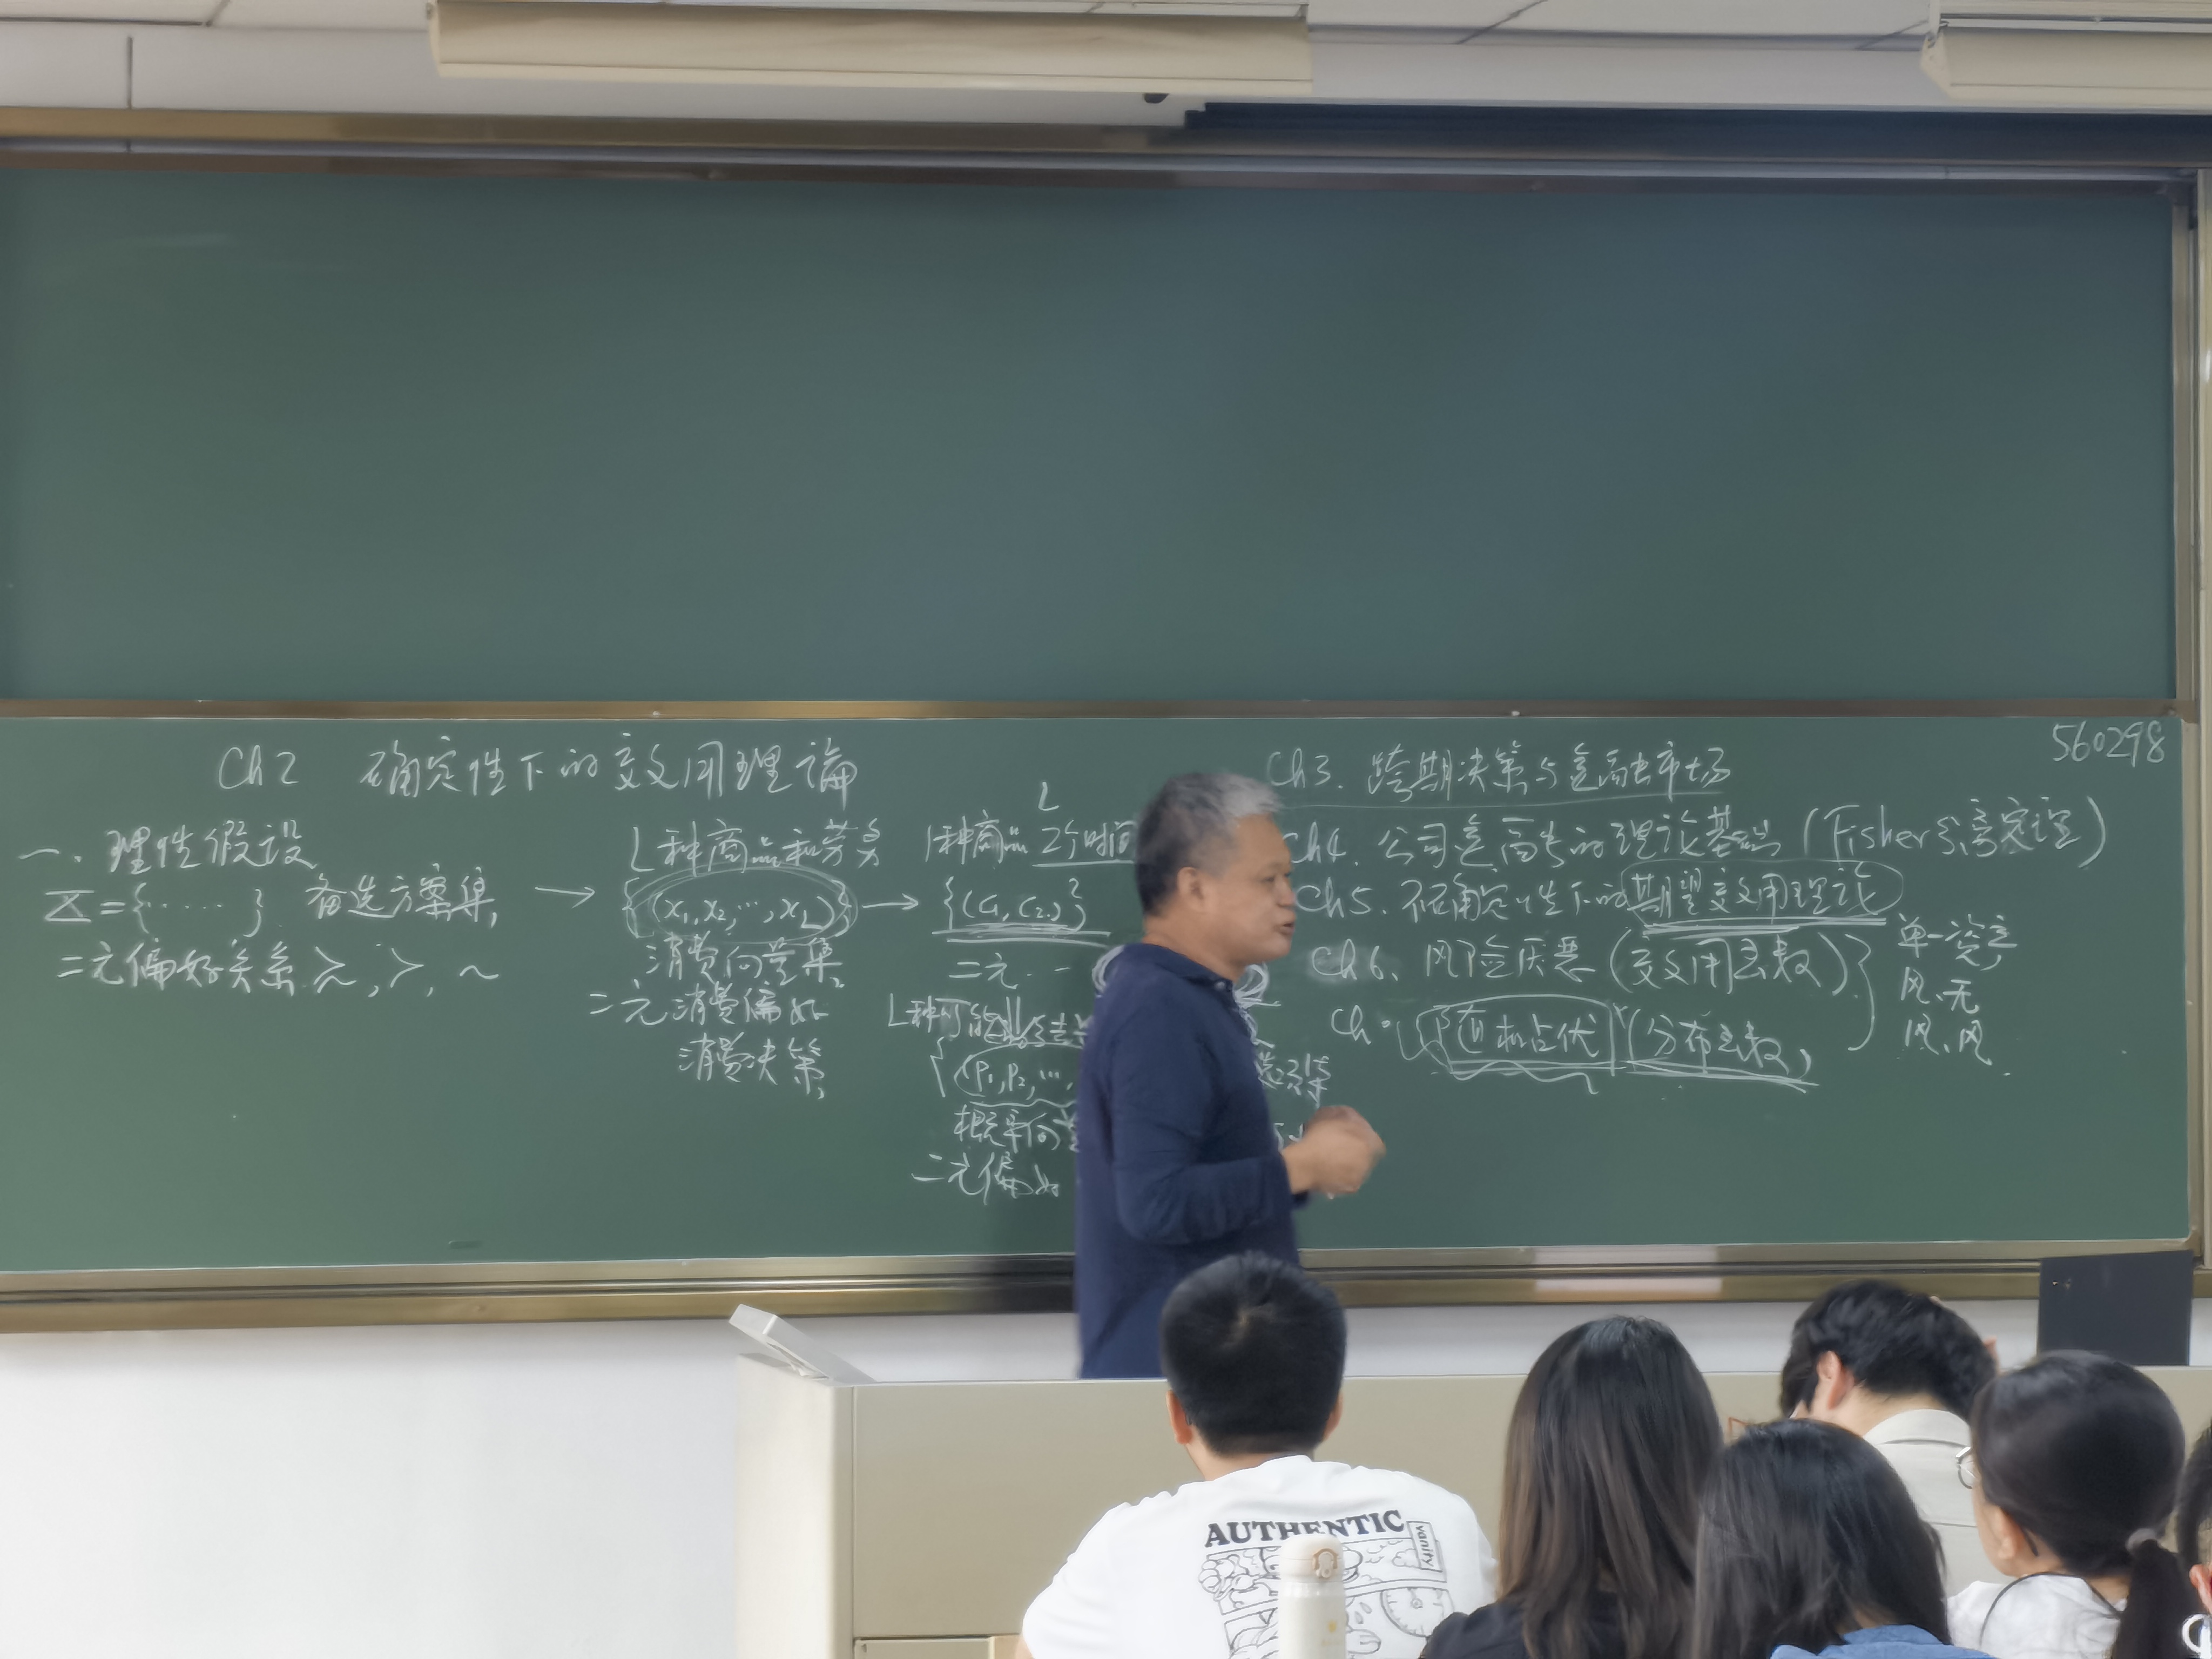 Ch2 确定性下的效用理論
一. 理性假设
X = {‥‥‥} 备选方案集,
二元偏好关系 ≿, ≻, ~
→
L种商品和劳务
{(x₁, x₂, ⋯, x_L)}
消费向量集,
二元消费偏好
消费决策,
→
L
1种商品 2个时间
{(C₁, C₂)}
二元
L种可能
{(P₁, P₂, ⋯,
概率向
二元偏好
Ch3. 跨期决策与金融市场
Ch4. 公司金融的理论基础 (Fisher分离定理)
Ch5. 不确定性下的期望效用理论
Ch6. 风险厌恶 (效用函数)
Ch 随机占优 (分布函数)
} 单一资产
风、无
风、风
560298
AUTHENTIC
vanity